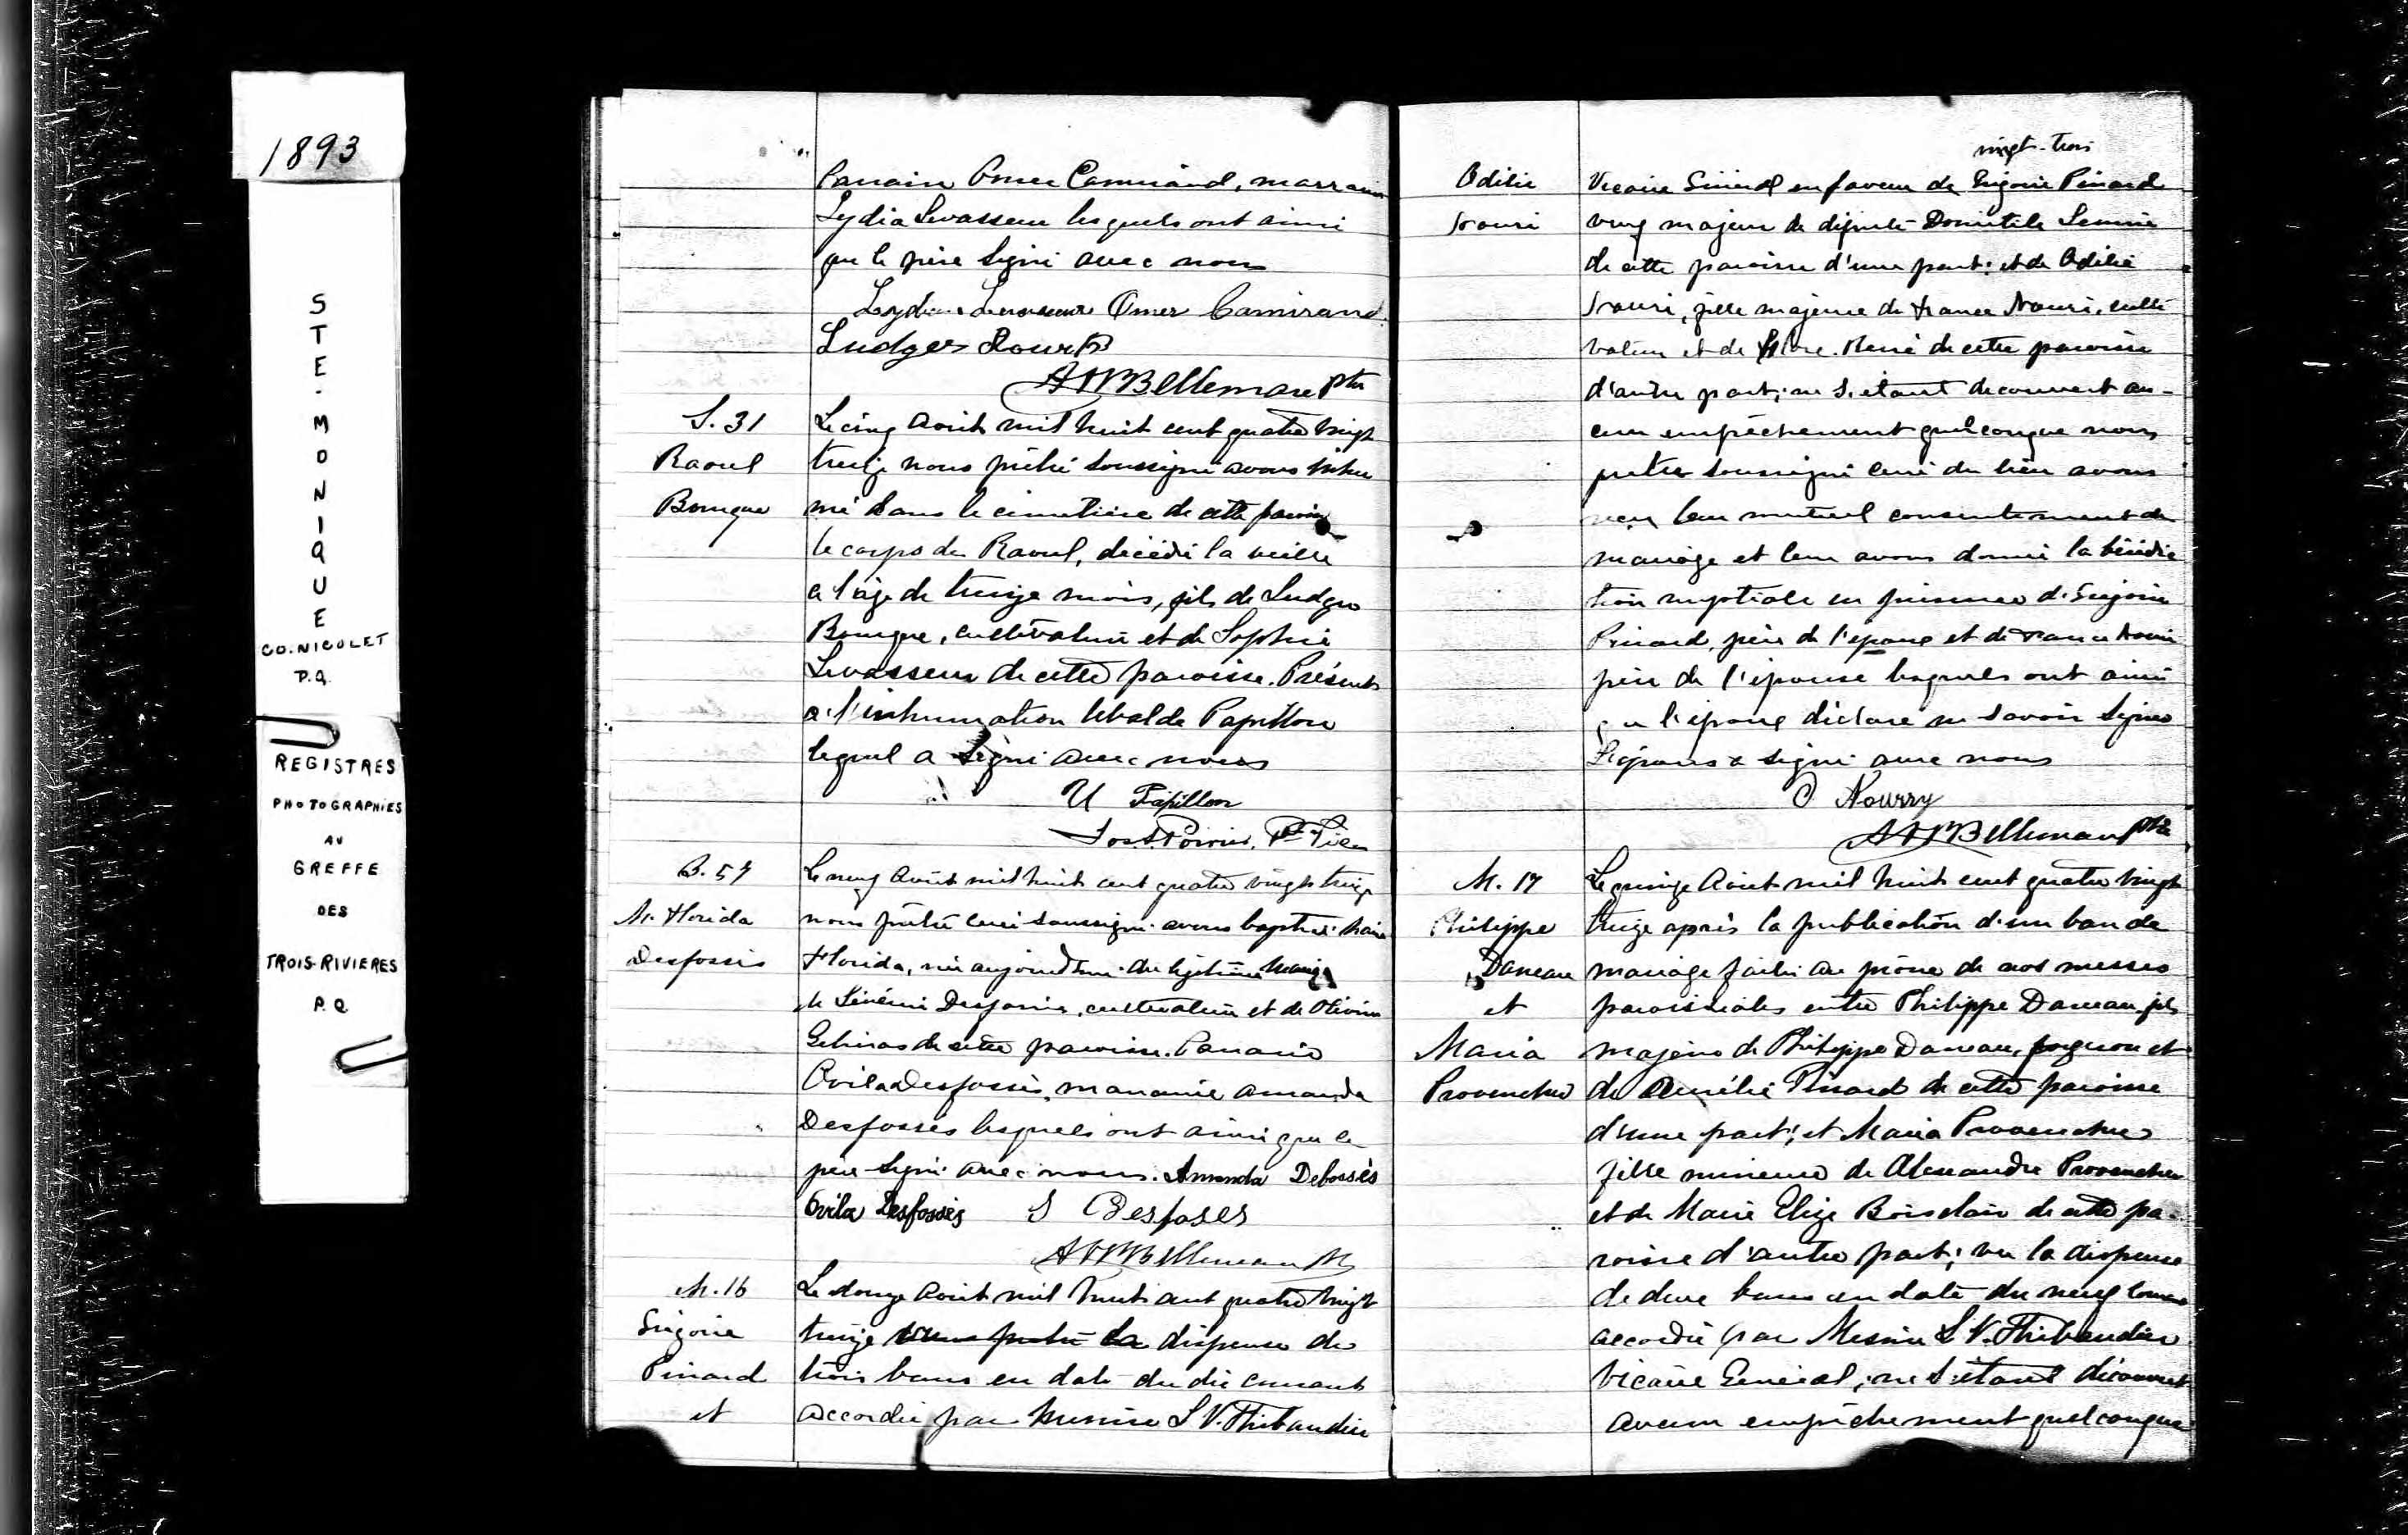 1893
STE-MONIQUE
CO. NICOLET
P.Q.
REGISTRES
PHOTOGRAPHIÉS
AU
GREFFE
DES
TROIS-RIVIERES
P.Q.
Parrain Omer Camirand, marraine
Lydia Levasseur lesquels ont ainsi
que le père signé avec nous
Lydia Levasseur Omer Camirand
Ludger
A N Bellemare Ptre
S. 31
Raoul
Bourque
Le cinq Août mil huit cent quatre vingt
treize nous prêtre soussigné avons inhu
mé dans le cimetière de cette paroisse
le corps de Raoul, décédé la veille
a l'age de treize mois, fils de Ludger
Bourque, cultivateur et de Sophie
Levasseur de cette paroisse. Présents
a l'inhumation Ubalde Papillon
lequel a signé avec nous
U Papillon
B. 57
M. Florida
Desfossés
Le neuf Août mil huit cent quatre vingt treize
nous prêtre curé soussigné avons baptisé Marie
Florida, née aujourd'hui du légitime mariage
de Sévérin Desfossés, cultivateur et de Olivine
de cette paroisse. Parrain
Ovila Desfossés, marraine Amanda
Desfossés lesquels ont ainsi que le
père signé avec nous. Amanda Defossés
Ovila Desfossés S Desfosés
A N Bellemare Ptre
M. 16
Grégoire
Pinard
et
Le douze Août mil huit cent quatre vingt
treize dispense de
trois bans en date du dix courant
accordée par Messire S V. Thibaudier
vingt-trois
Odélie
Nouri
Vicaire Général en faveur de Grégoire Pinard
veuf majeur de défunte Domitile
de cette paroisse d'une part; et de Odélie
Nouri, fille majeure de France Nouri, culti
vateur et de de cette paroisse
d'autre part; ne s'étant découvert au-
cun empêchement quelconque nous
prêtre soussigné curé du lieu avons
reçu leur mutuel consentement de
mariage et leur avons donné la bénédic
tion nuptiale en présence de Grégoire
Pinard, père de l'époux et de France Nouri
père de l'épouse lesquels ont ainsi
que l'époux déclaré ne savoir signer
L'épouse a signé avec nous
O Nourry
A N Bellemare Ptre
M. 17
Philippe
Daneau
et
Maria
Provencher
Le quinze Août mil huit cent quatre vingt
treize après la publication d'un ban de
mariage faite au prône de nos messes
paroissiales entre Philippe Daneau fils
majeur de Philippe Daneau, forgeron et
de Aurélie Pinard de cette paroisse
d'une part; et Maria Provencher
fille mineure de Alexandre Provencher
et de Marie Elize Boisclair de cette pa-
roisse d'autre part; vu la dispense
de deux bans en date du neuf courant
accordée par Messire S V. Thibaudier
Vicaire Général; ne s'étant découvert
aucun empêchement quelconque